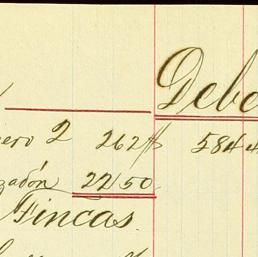 Debe
ero 2 262 $ 584
zadón 22 50
Fincas.